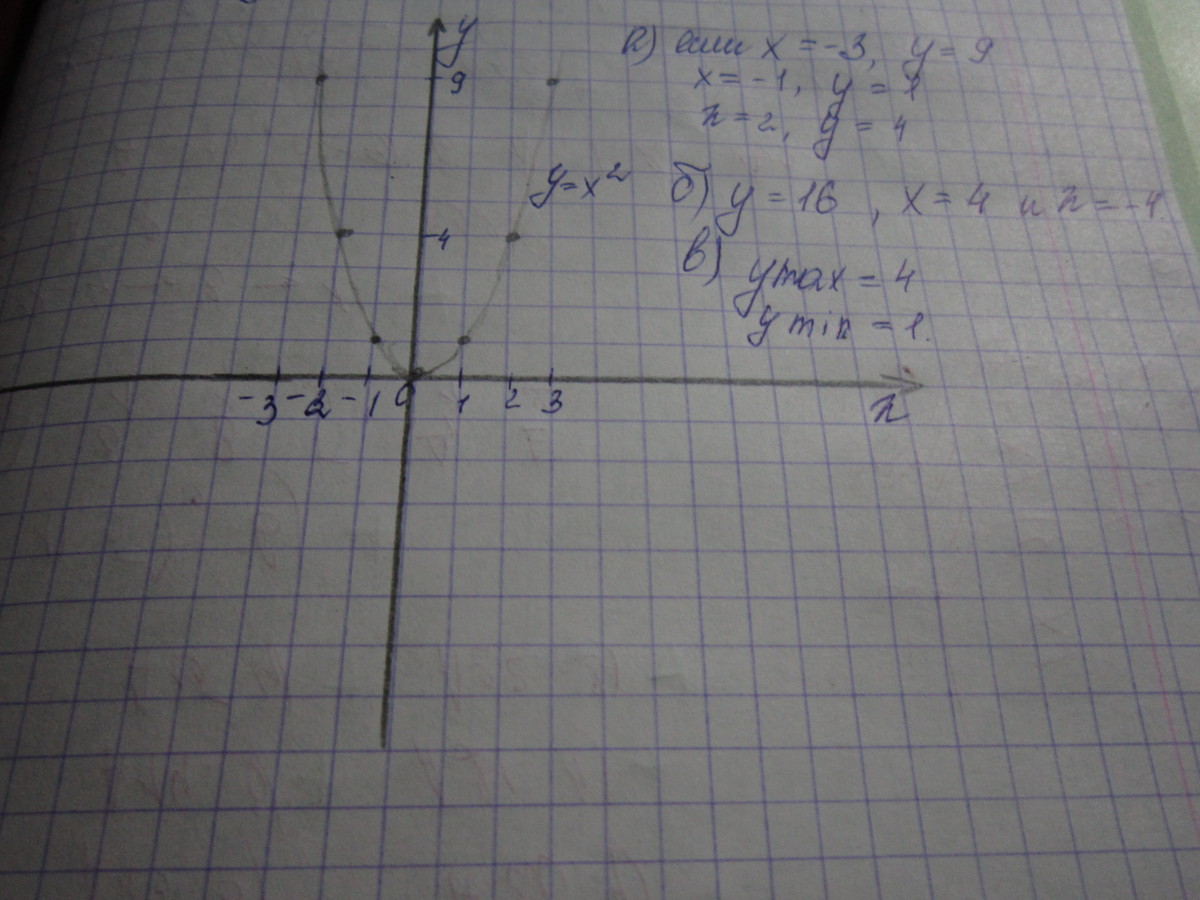 y
9
4
y=x²
-3 -2 -1 0 1 2 3
x
а) если x = -3, y = 9
x = -1, y = 1
x = 2, y = 4
б) y = 16, x = 4 и x = -4.
в) y max = 4
y min = 1.